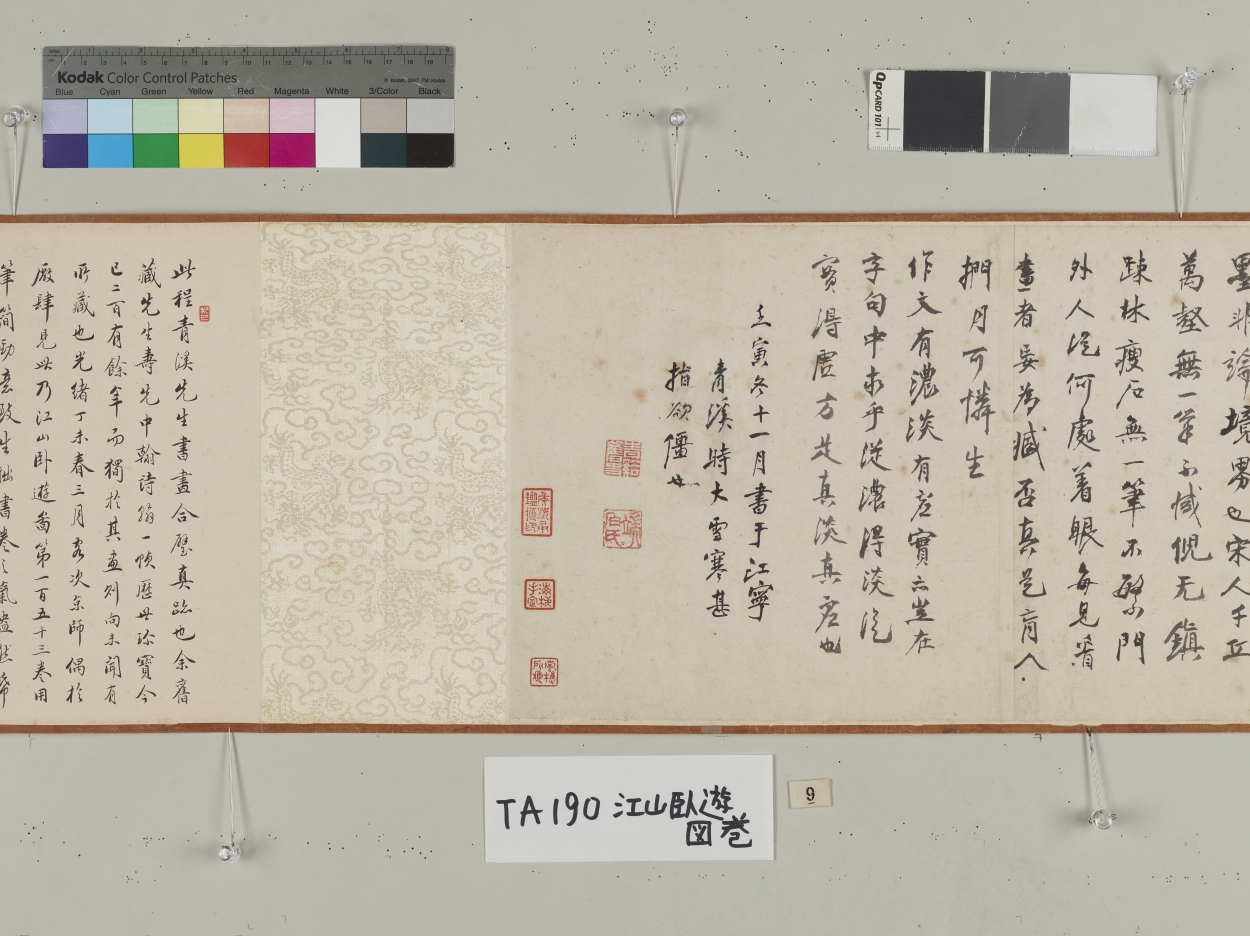 Kodak Color Control Patches
Blue Cyan Green Yellow Red Magenta White 3/Color Black
QPCARD 101 v4
墨非論境界也宋人千丘
萬壑無一筆不減倪无鎮
踈林瘦石無一筆不繁門
外人從何處着眼每見著
畫者妄為臧否真是盲人
捫月可憐生
作文有濃淡有虛實亦豈在
字句中求乎從濃得淡從
實得虛方是真淡真虛也
壬寅冬十一月書于江寧
青溪時大雪寒甚
指欲僵也
此程青溪先生書畫合璧真跡也余舊
藏先生壽先中翰詩翁一幀歷世珍寶今
已二百有餘年而獨於其畫則向未聞有
所藏也光緒丁未春三月客次京師偶於
廠肆見此乃江山卧遊圖第一百五十三卷用
筆簡勁意致生拙書卷之氣盎然
TA190 江山臥遊
図巻
9